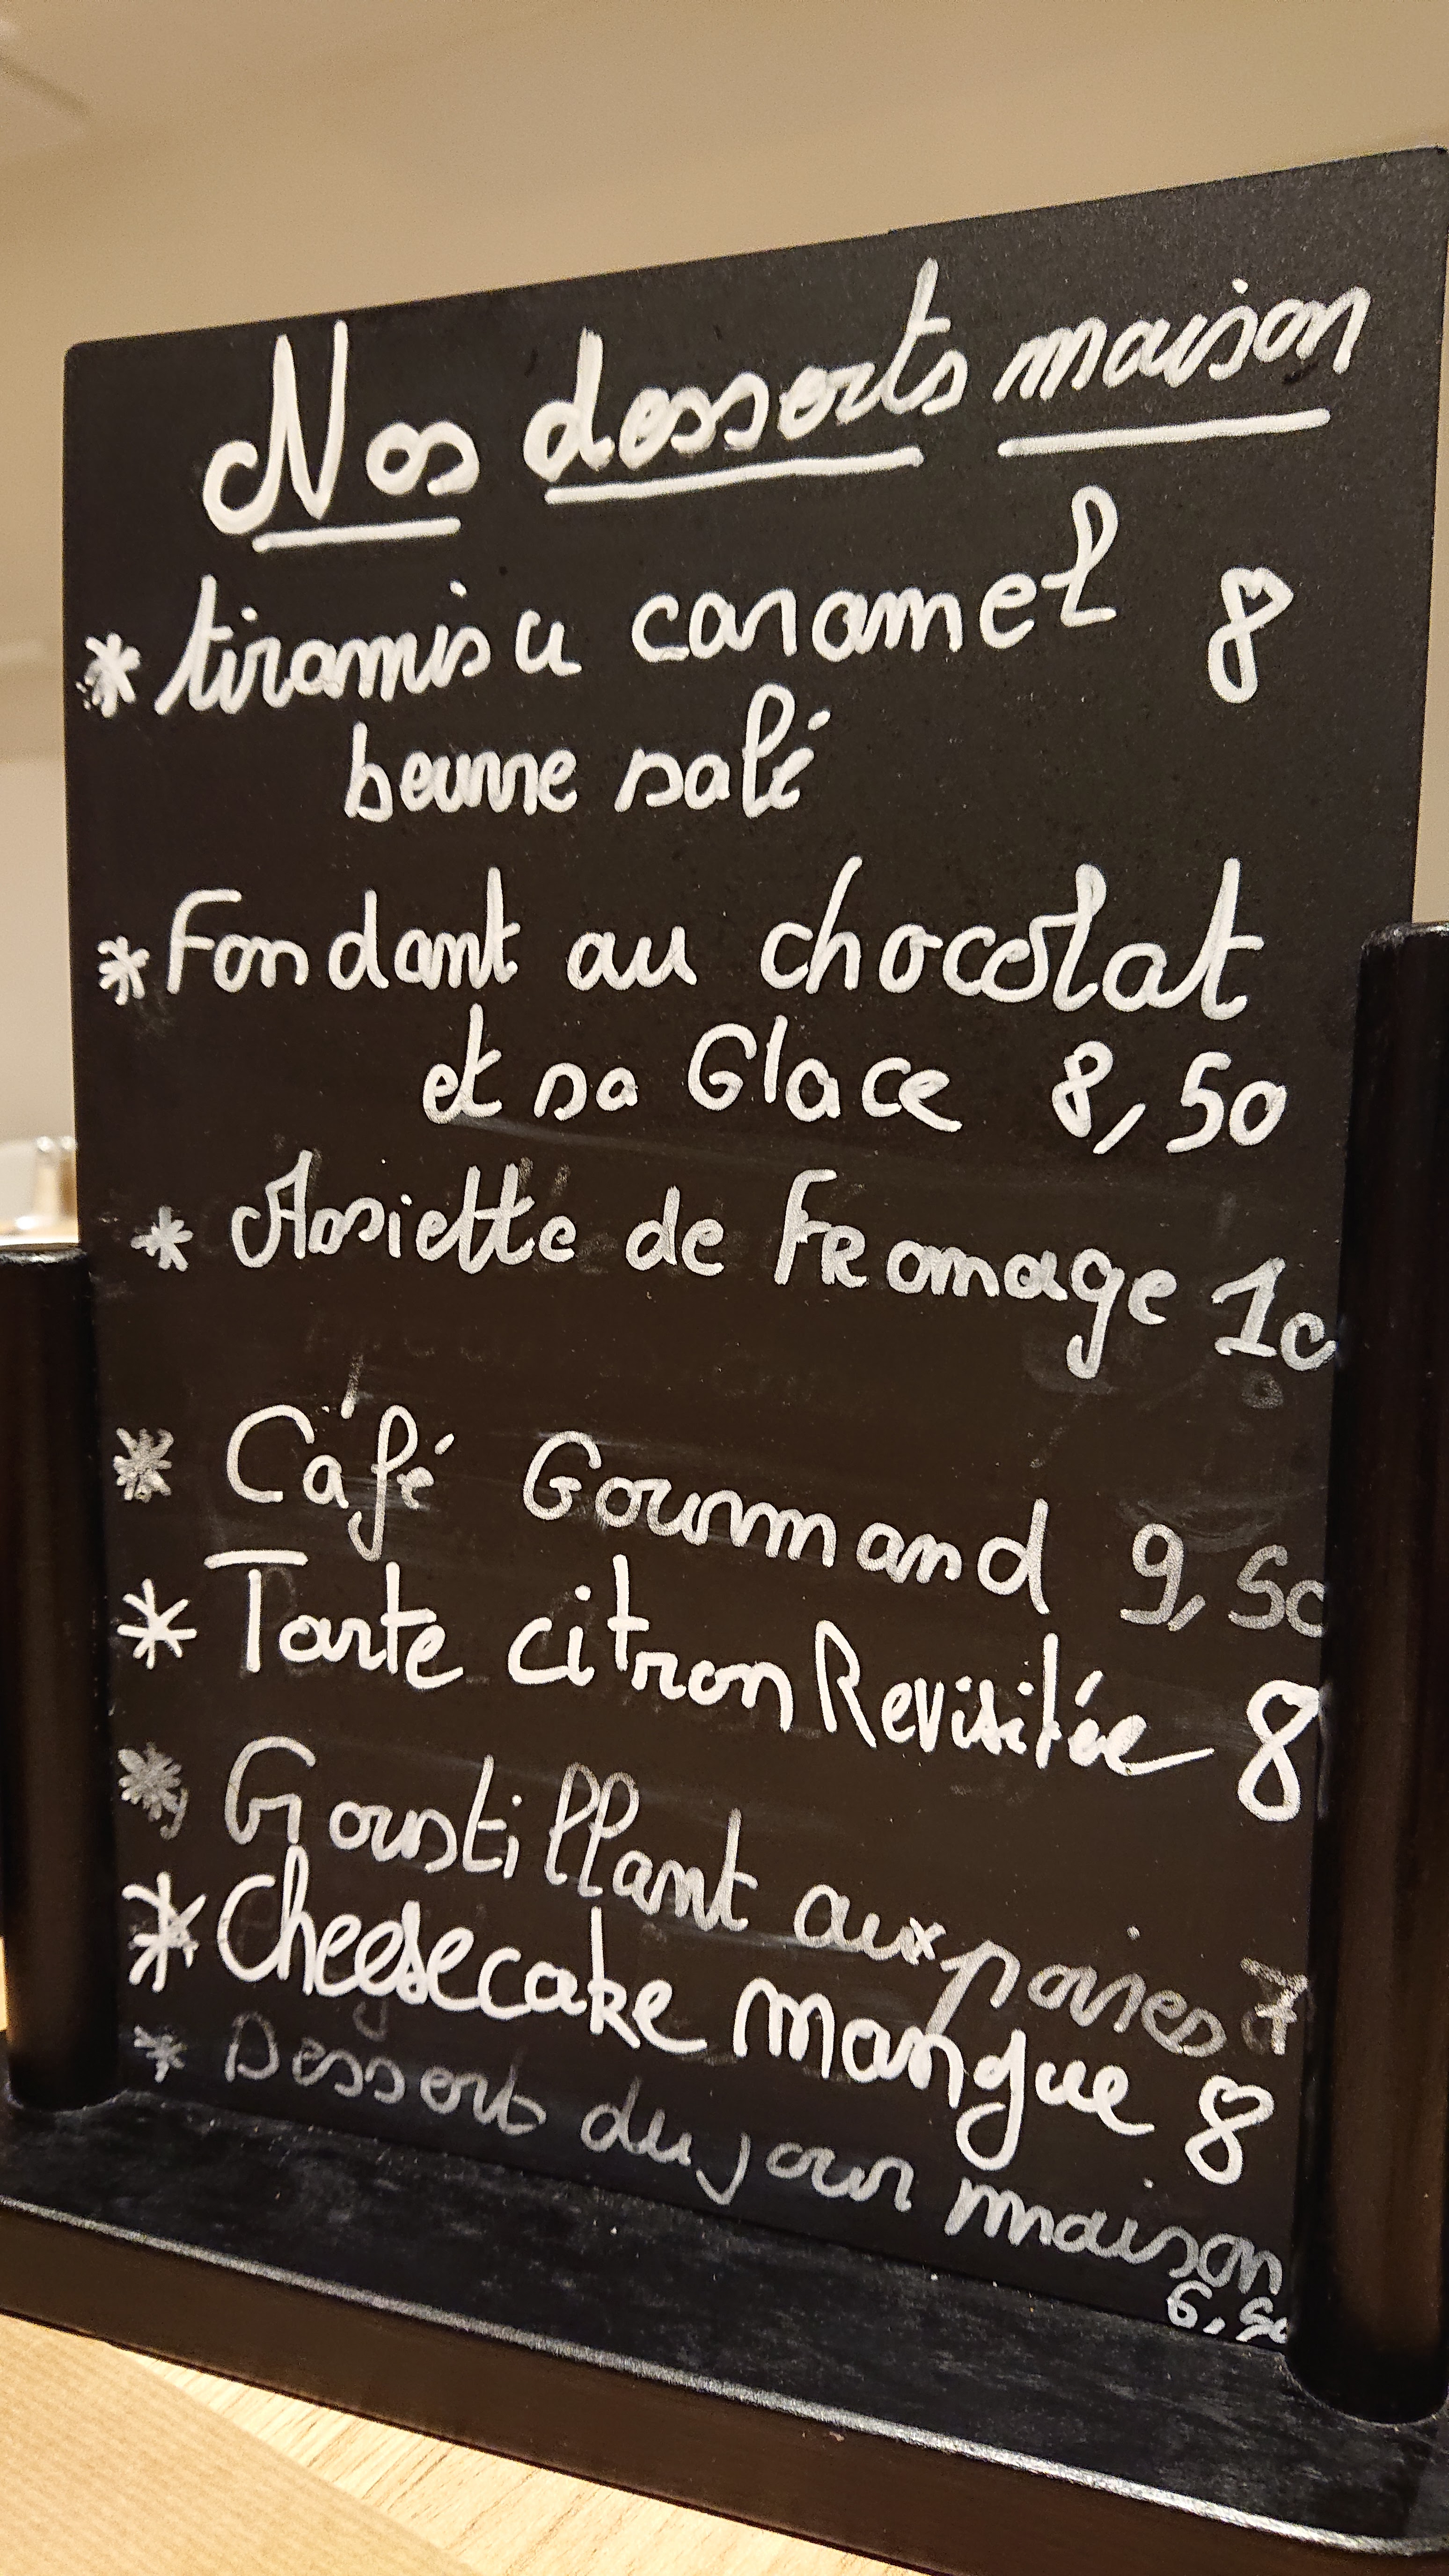 Nos desserts maison
* tiramisu caramel 8
beurre salé
* Fondant au chocolat
et sa Glace 8,50
* Assiette de Fromage 10
* Café Gourmand 9,50
* Tarte citron Revisitée 8
* Goustillant aux poires 7
* Cheesecake mangue 8
* Desserts du jour maison
6,50